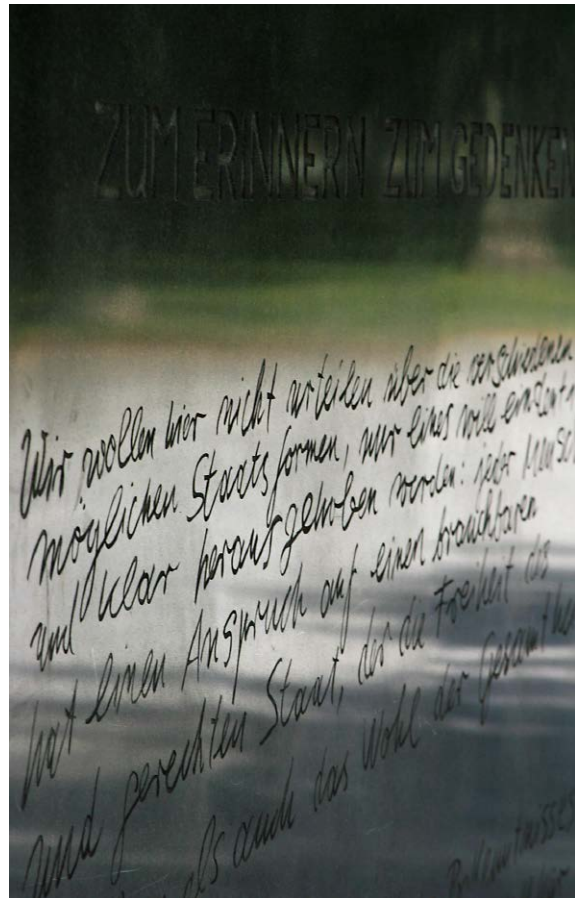 ZUM ERINNERN ZUM GEDENKEN
Wir wollen hier nicht urteilen über die verschiedenen
möglichen Staatsformen, nur eines will
und klar herausgehoben werden: jeder
hat einen Anspruch auf einen brauchbaren
und gerechten Staat, der die Freiheit des
als auch das Wohl der